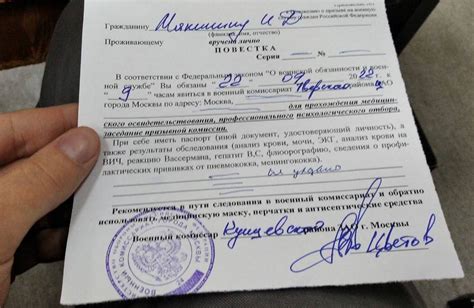 о призыве на военную
Российской Федерации
Гражданину Мякшину И.В
(фамилия, имя, отчество)
Проживающему вручено лично
ПОВЕСТКА
Серия — № —
В соответствии с Федеральным законом "О воинской обязанности и воен-
ной службе" Вы обязаны "20" 04 2022 г.
к "9" часам явиться в военный комиссариат Тверского района ЦАО
города Москвы по адресу: Москва,
для прохождения медицин-
ского освидетельствования, профессионального психологического отбора,
заседание призывной комиссии.
При себе иметь паспорт (иной документ, удостоверяющий личность), а
также результаты обследования (анализ крови, мочи, ЭКГ, анализ крови на
ВИЧ, реакцию Вассермана, гепатит В,С, флюорографию, сведения о профи-
лактических прививках от пневмококка, менингококка).
Рекомендуется в пути следования в военный комиссариат и обратно
использовать медицинскую маску, перчатки и антисептические средства
Военный комиссар района ЦАО г. Москвы
Цветов